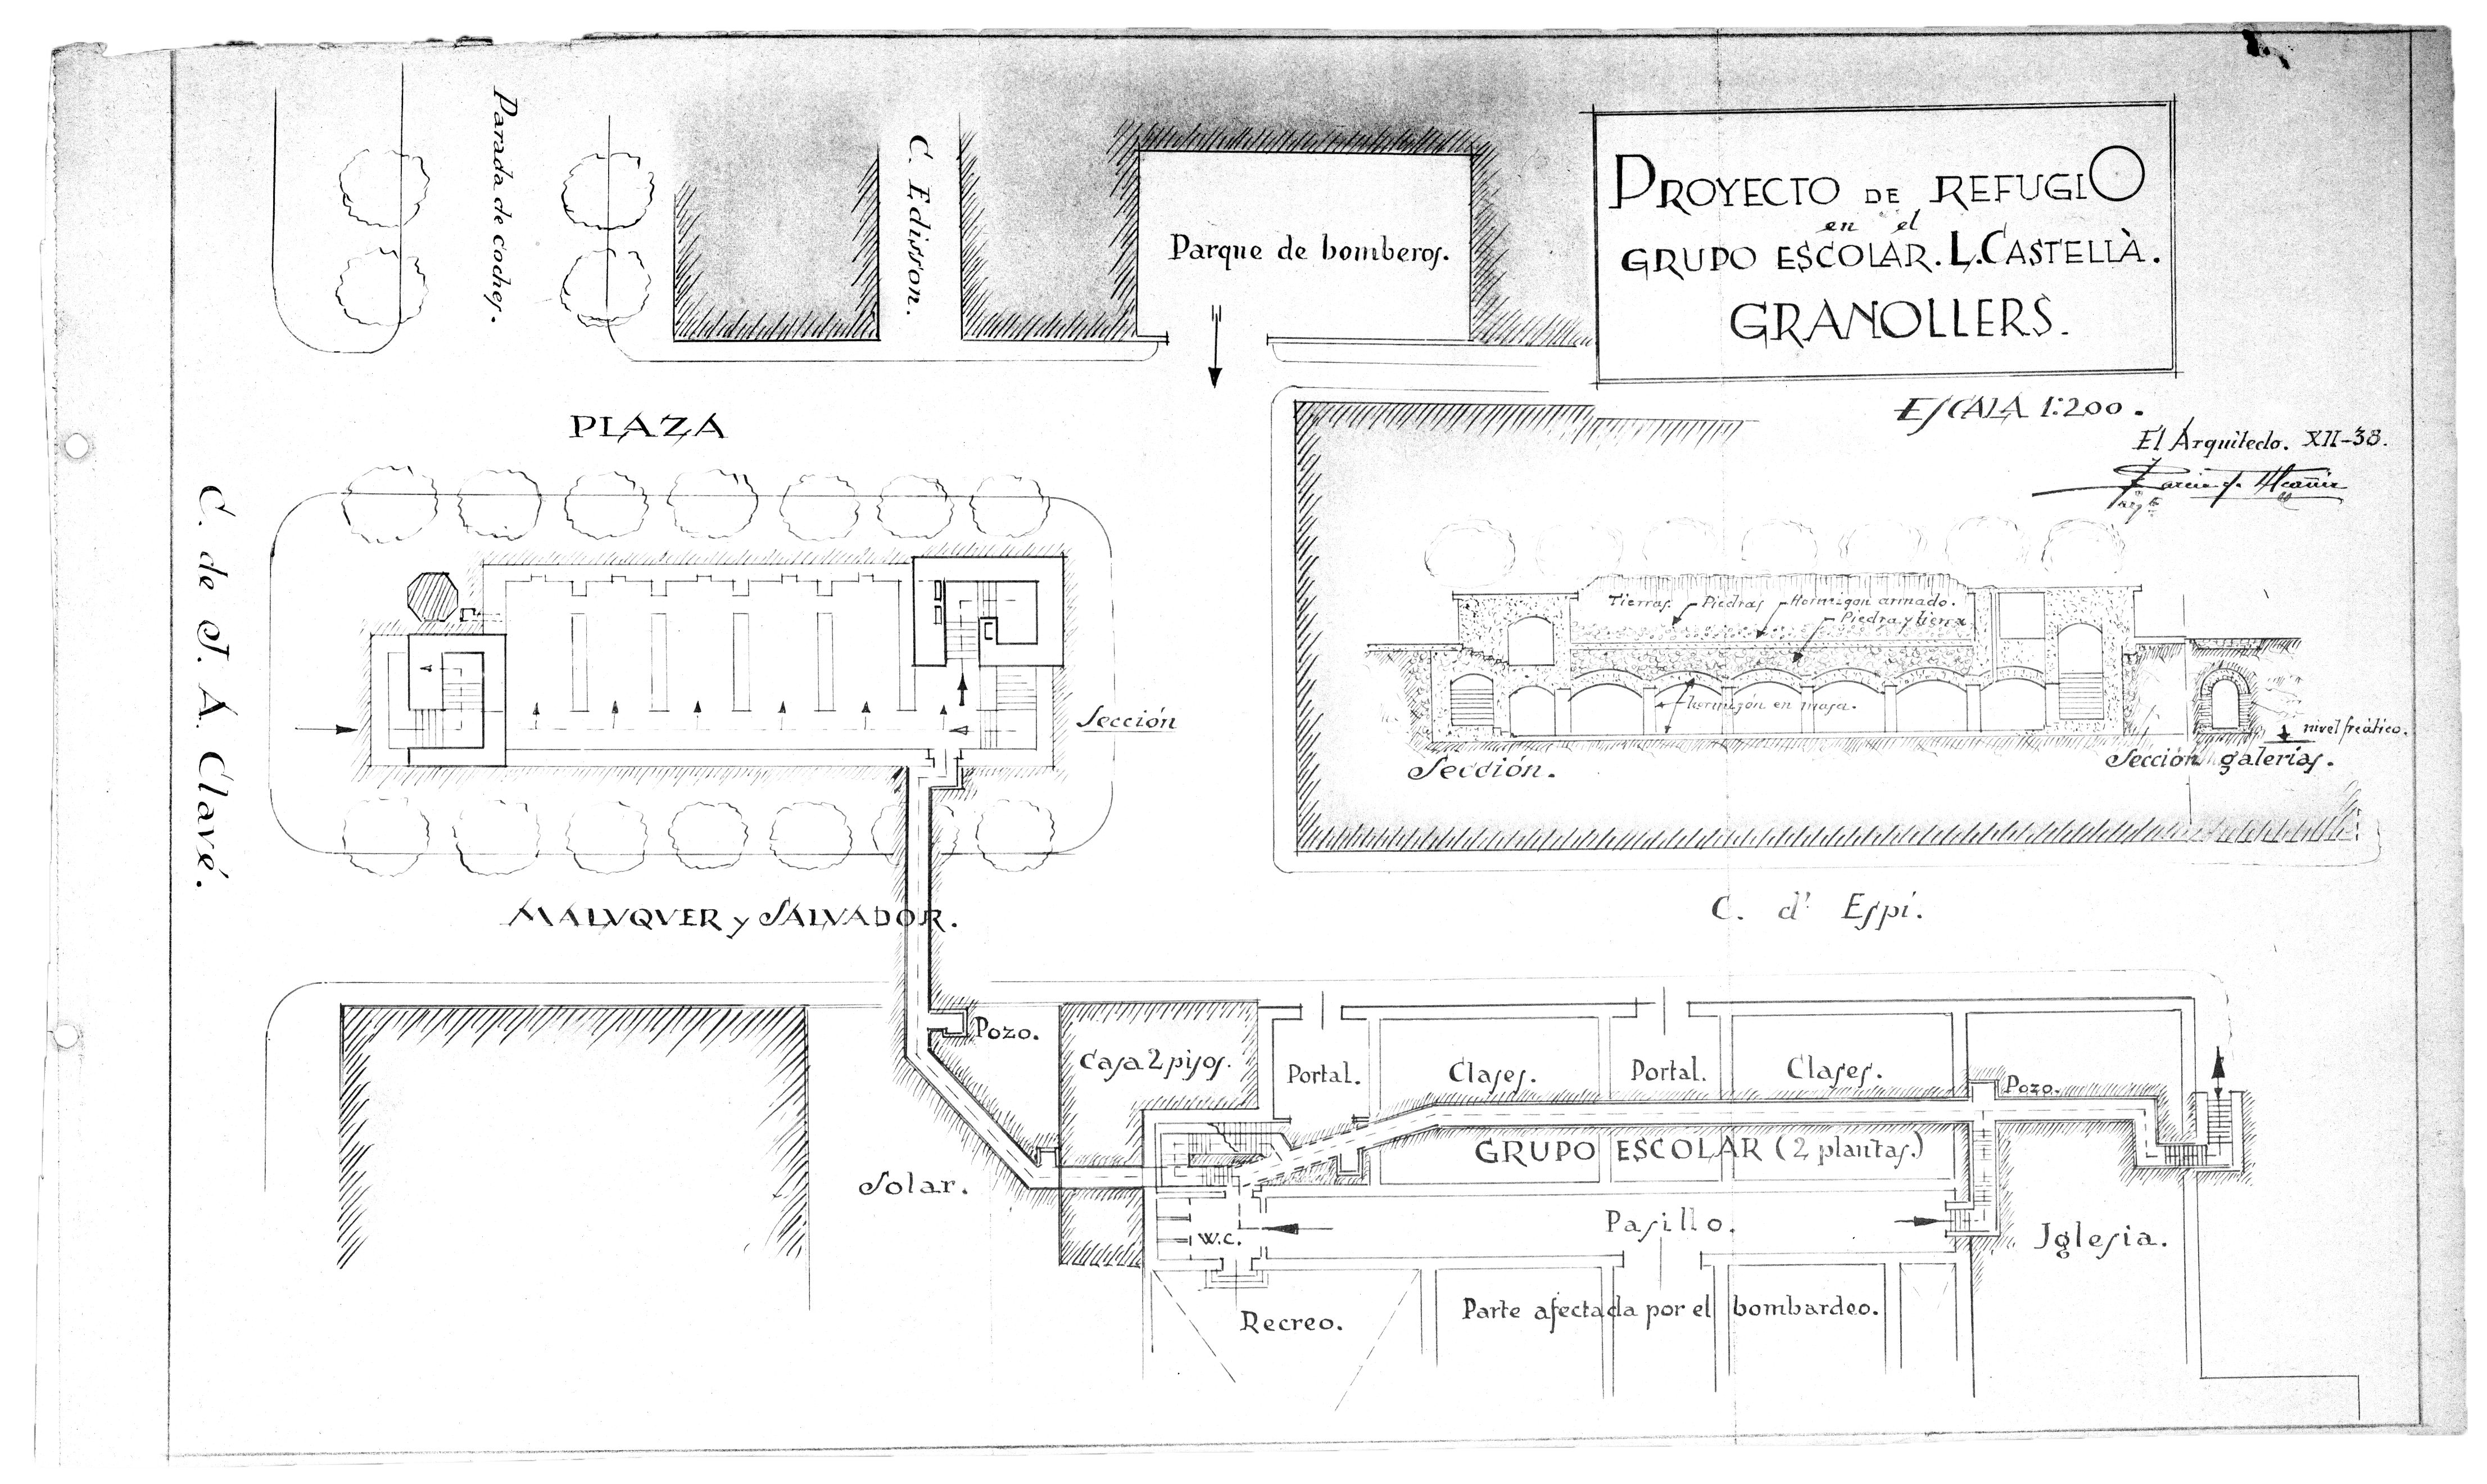 Parada de coches.
C. Edisson.
Parque de bomberos.
PROYECTO DE REFUGIO
en el
GRUPO ESCOLAR. L. CASTELLÀ.
GRANOLLERS.
ESCALA 1:200.
El Arquitecto. XII-38.
PLAZA
C. de J. A. Clavé.
Sección
Tierras. Piedras Hormigon armado.
Piedra y tierra
hormigón en masa.
nivel freático.
Sección.
Sección galerias.
MALUQUER y SALVADOR.
C. d' Espí.
Pozo.
Casa 2 pisos.
Portal.
Clases.
Portal.
Clases.
Pozo.
GRUPO ESCOLAR (2 plantas.)
Solar.
W.C.
Pasillo.
Iglesia.
Recreo.
Parte afectada por el bombardeo.